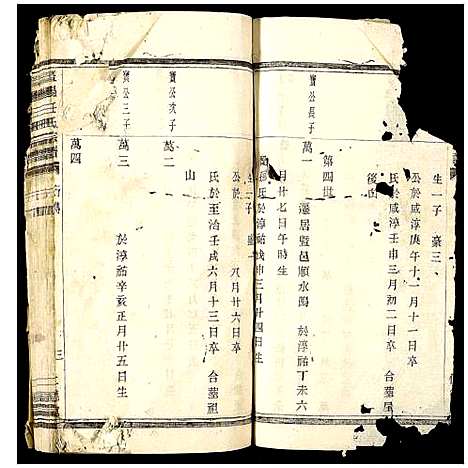 生一子 豪三
公於咸淳庚午十一月十一日卒
氏於咸淳壬申三月初二日卒 合墓屋
後山
第四世
寳公長子
萬一 遷居暨邑順水湖 於淳祐丁未六
月廿七日午時生
氏於淳祐戊申三月廿四日生
生一子
公於 八月廿六日卒
氏於至治壬戌六月十三日卒 合墓祖
山
寳公次子
萬二
寳公三子
萬三 於淳祐辛亥正月廿五日生
萬四
三